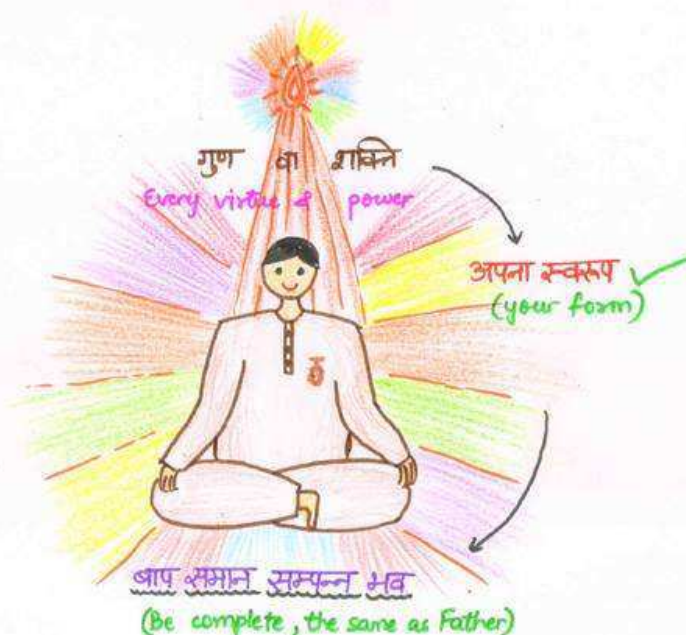 गुण वा शक्ति
Every virtue & power
अपना स्वरूप
(your form)
बाप समान सम्पन्न भव
(Be complete, the same as Father)